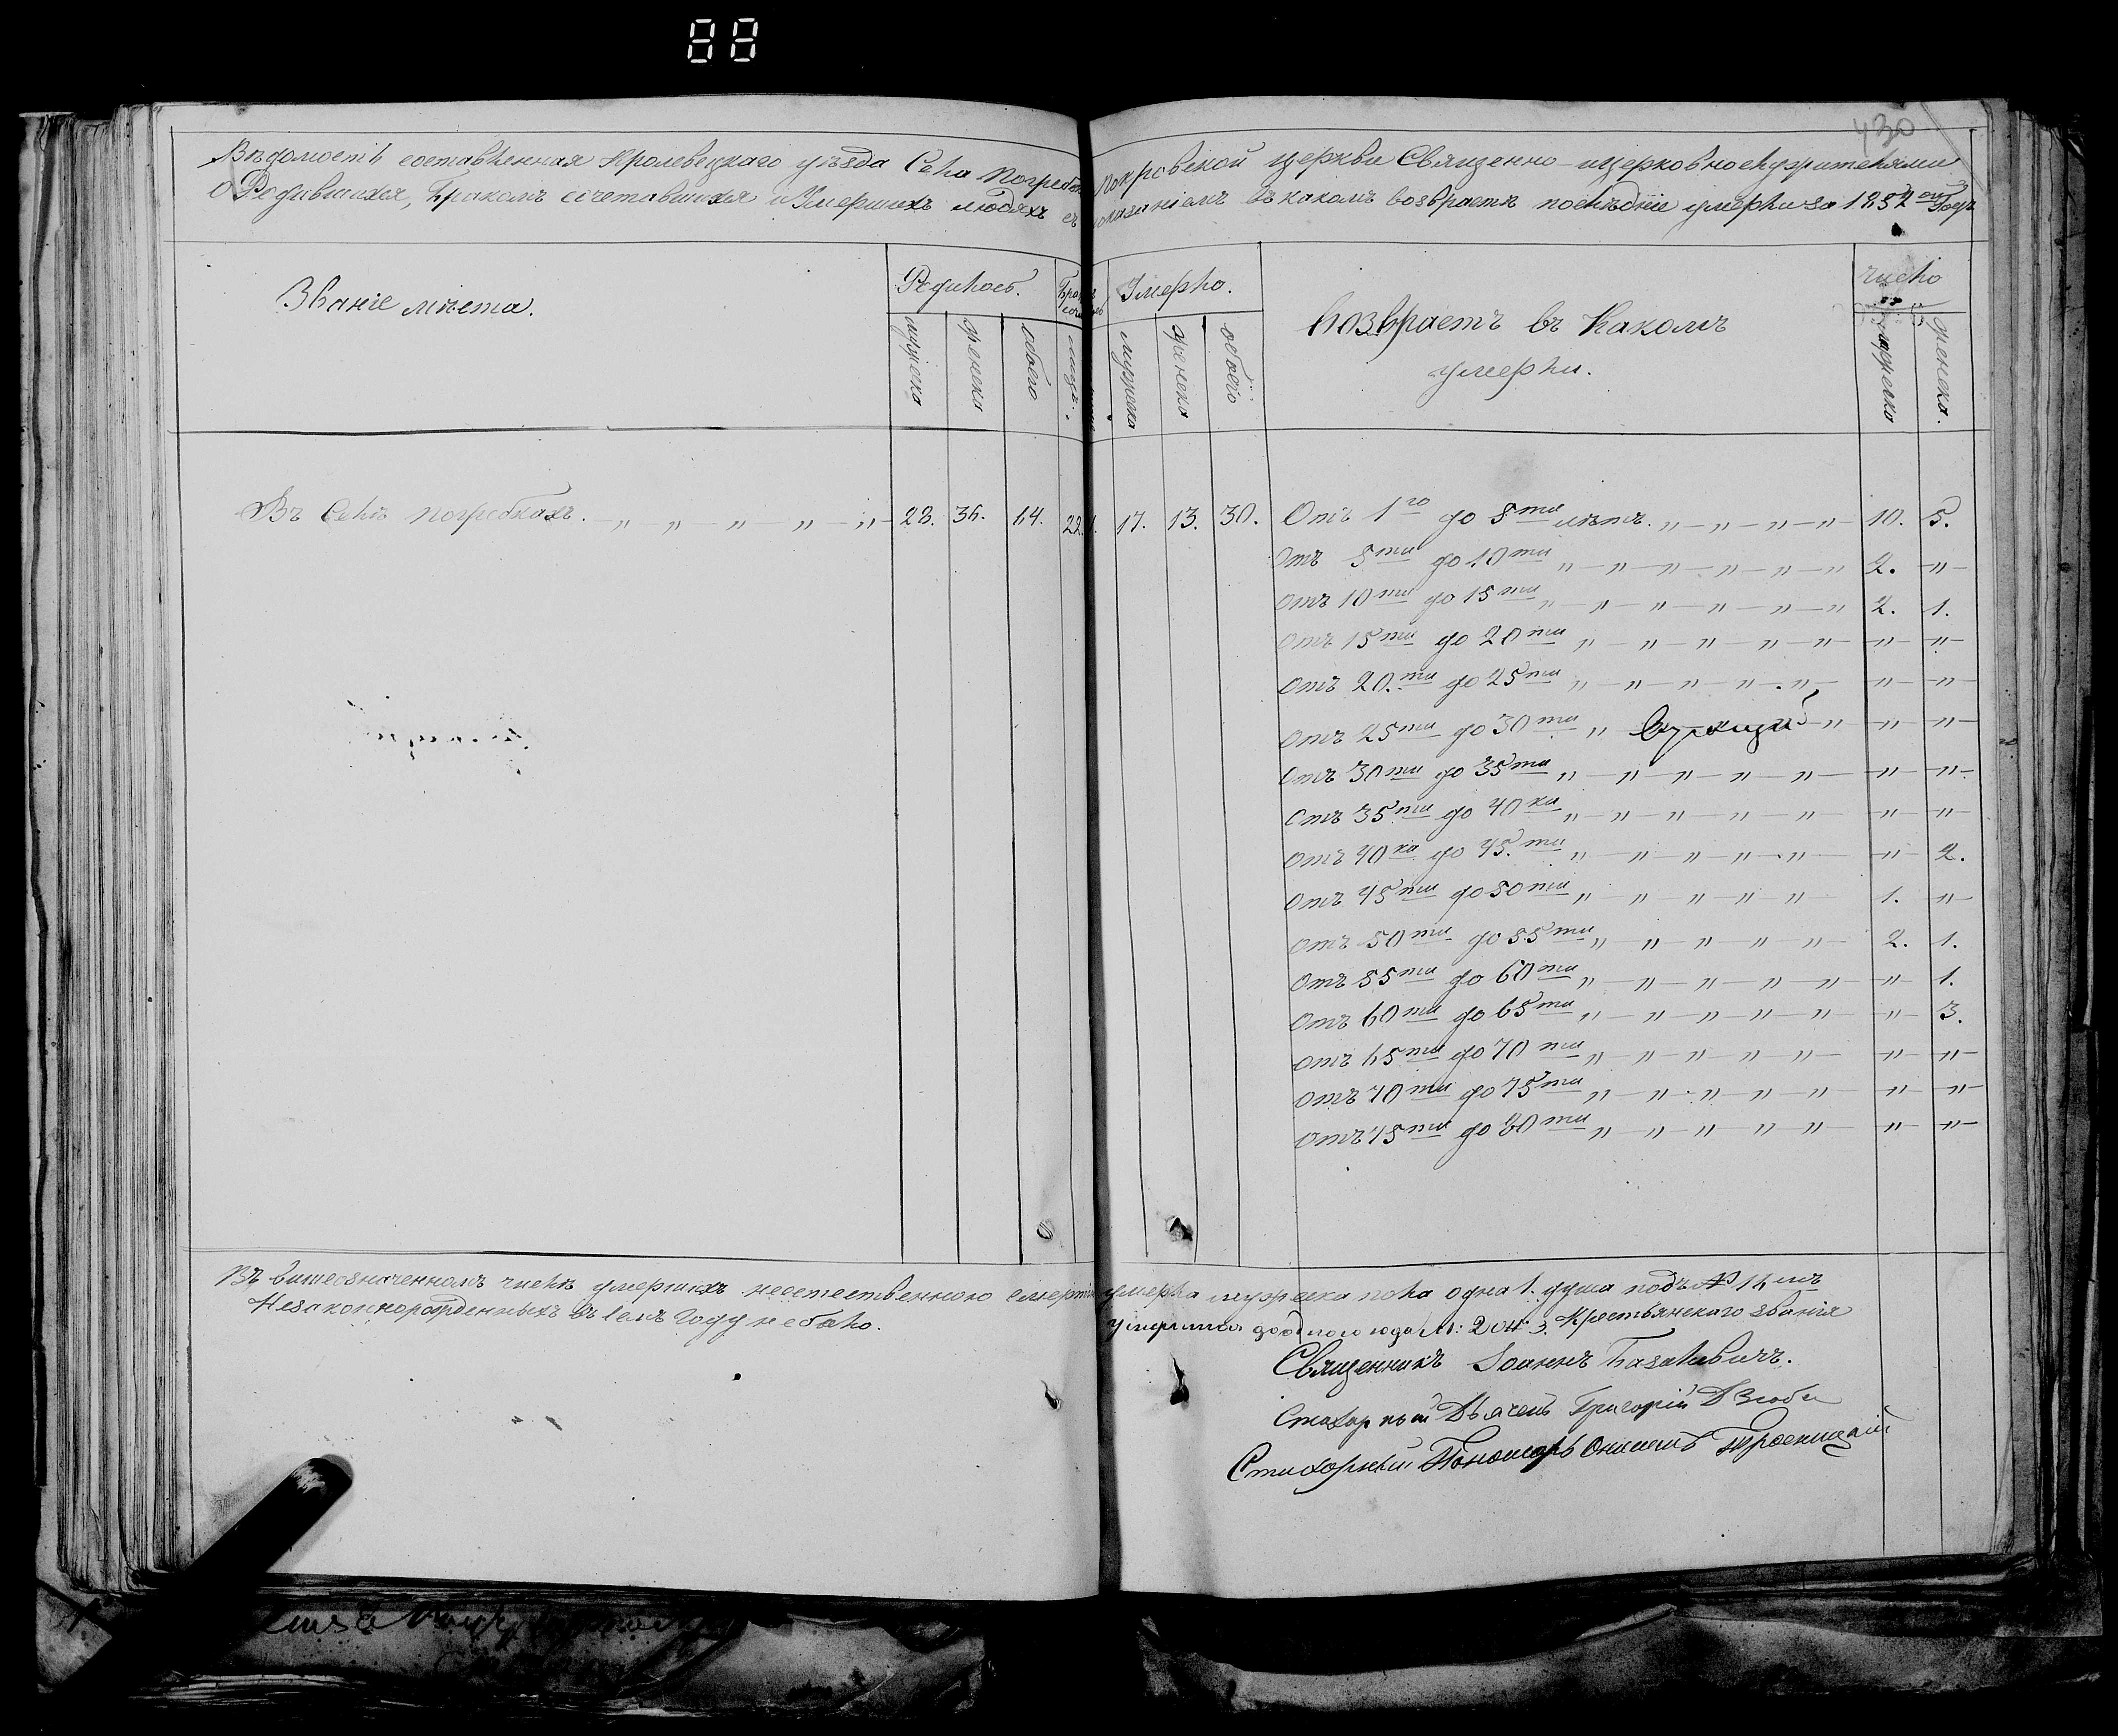 88
430
Вѣдомость составленная Кролевецкаго уѣзда Села Погребокъ Покровской церкви Священно-церковнослужителями
о Родившихся, Бракомъ сочетавшихся и Умершихъ людяхъ съ показаніемъ въ какомъ возврастѣ послѣдніе умерли за 1852 ой Годъ
Званіе мѣста.
Родилось.
Умерло.
возврастъ въ какомъ
умерли.
число
мужеска
женска
обоего
мужеска
женска
обоего
мужеска
женска.
Въ Селѣ Погребкахъ. 28. 36. 64. 22. 17. 13. 30.
Отъ 1го до 5ти лѣтъ. 10. 5.
Отъ 5ти до 10ти „ 2. „
Отъ 10ти до 15ти „ 2. 1.
Отъ 15ти до 20ти „ „ „
Отъ 20.ти до 25ти „ „ „
Отъ 25ти до 30ти „ „ „
Отъ 30ти до 35ти „ „ „
Отъ 35ти до 40ка „ „ „
Отъ 40ка до 45.ти „ „ 2.
Отъ 45ти до 50ти „ 1. „
Отъ 50ти до 55ти „ 2. 1.
Отъ 55ти до 60ти „ „ 1.
Отъ 60ти до 65ти „ „ 3.
Отъ 65ти до 70ти „ „ „
Отъ 70ти до 75ти „ „ „
Отъ 75ти до 80ти „ „ „
Въ вишеозначенномъ числѣ умершихъ неестественною смертію умерла мужеска пола одна 1. душа подъ №
Незаконнорожденныхъ въ семъ Году небыло.
до одного года М: 2 Крестьянскаго званія
Священникъ Іоаннъ Базилевичъ.
Стихарный Дьячекъ Григорій Дзюба
Стихарный Пономарь Онисимъ Троеницкій